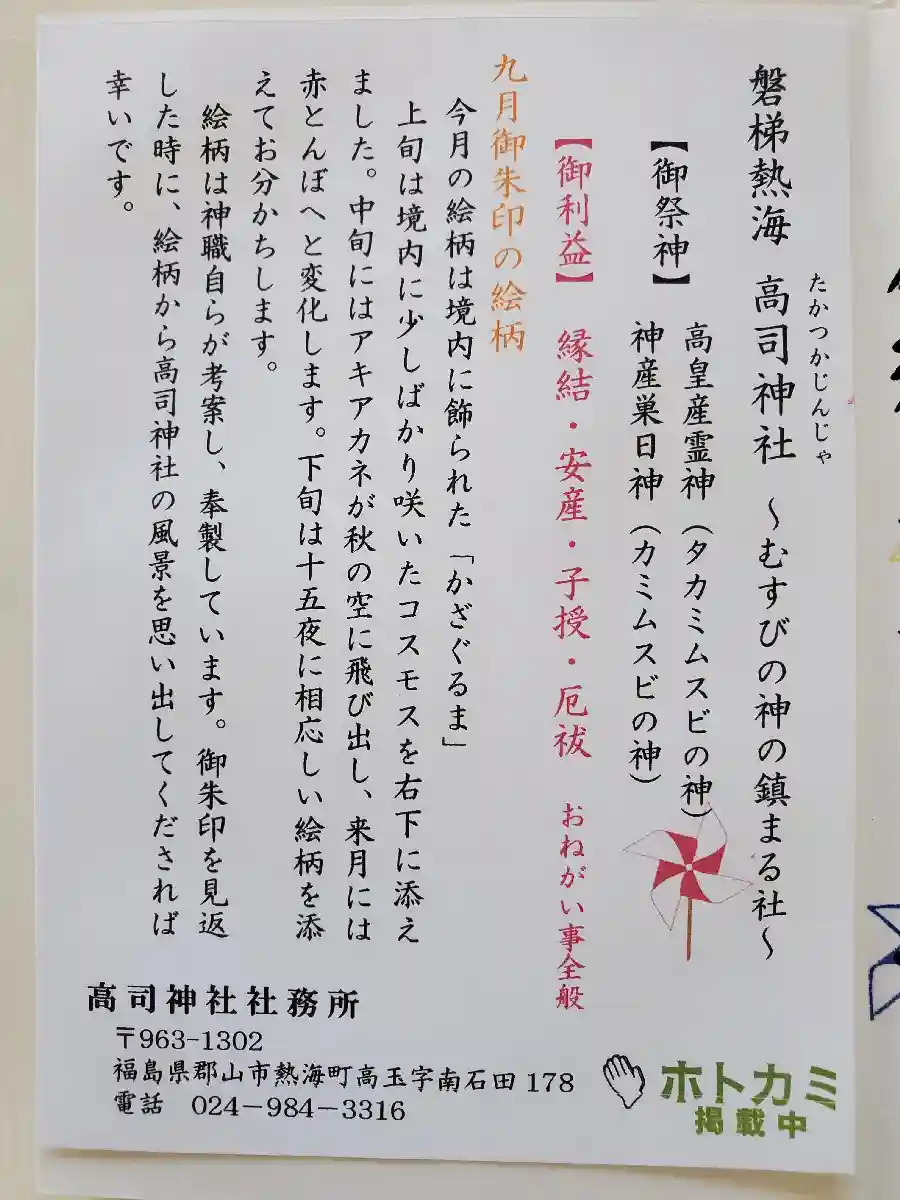 磐梯熱海 高司神社 ~むすびの神の鎮まる社~
たかつかじんじゃ
【御祭神】 高皇産霊神(タカミムスビの神)
神産巣日神(カミムスビの神)
【御利益】 縁結・安産・子授・厄祓 おねがい事全般
九月御朱印の絵柄
今月の絵柄は境内に飾られた「かざぐるま」
上旬は境内に少しばかり咲いたコスモスを右下に添え
ました。中旬にはアキアカネが秋の空に飛び出し、来月には
赤とんぼへと変化します。下旬は十五夜に相応しい絵柄を添
えてお分かちします。
絵柄は神職自らが考案し、奉製しています。御朱印を見返
した時に、絵柄から高司神社の風景を思い出してくだされば
幸いです。
高司神社社務所
〒963-1302
福島県郡山市熱海町高玉字南石田178
電話 024-984-3316
ホトカミ
掲載中